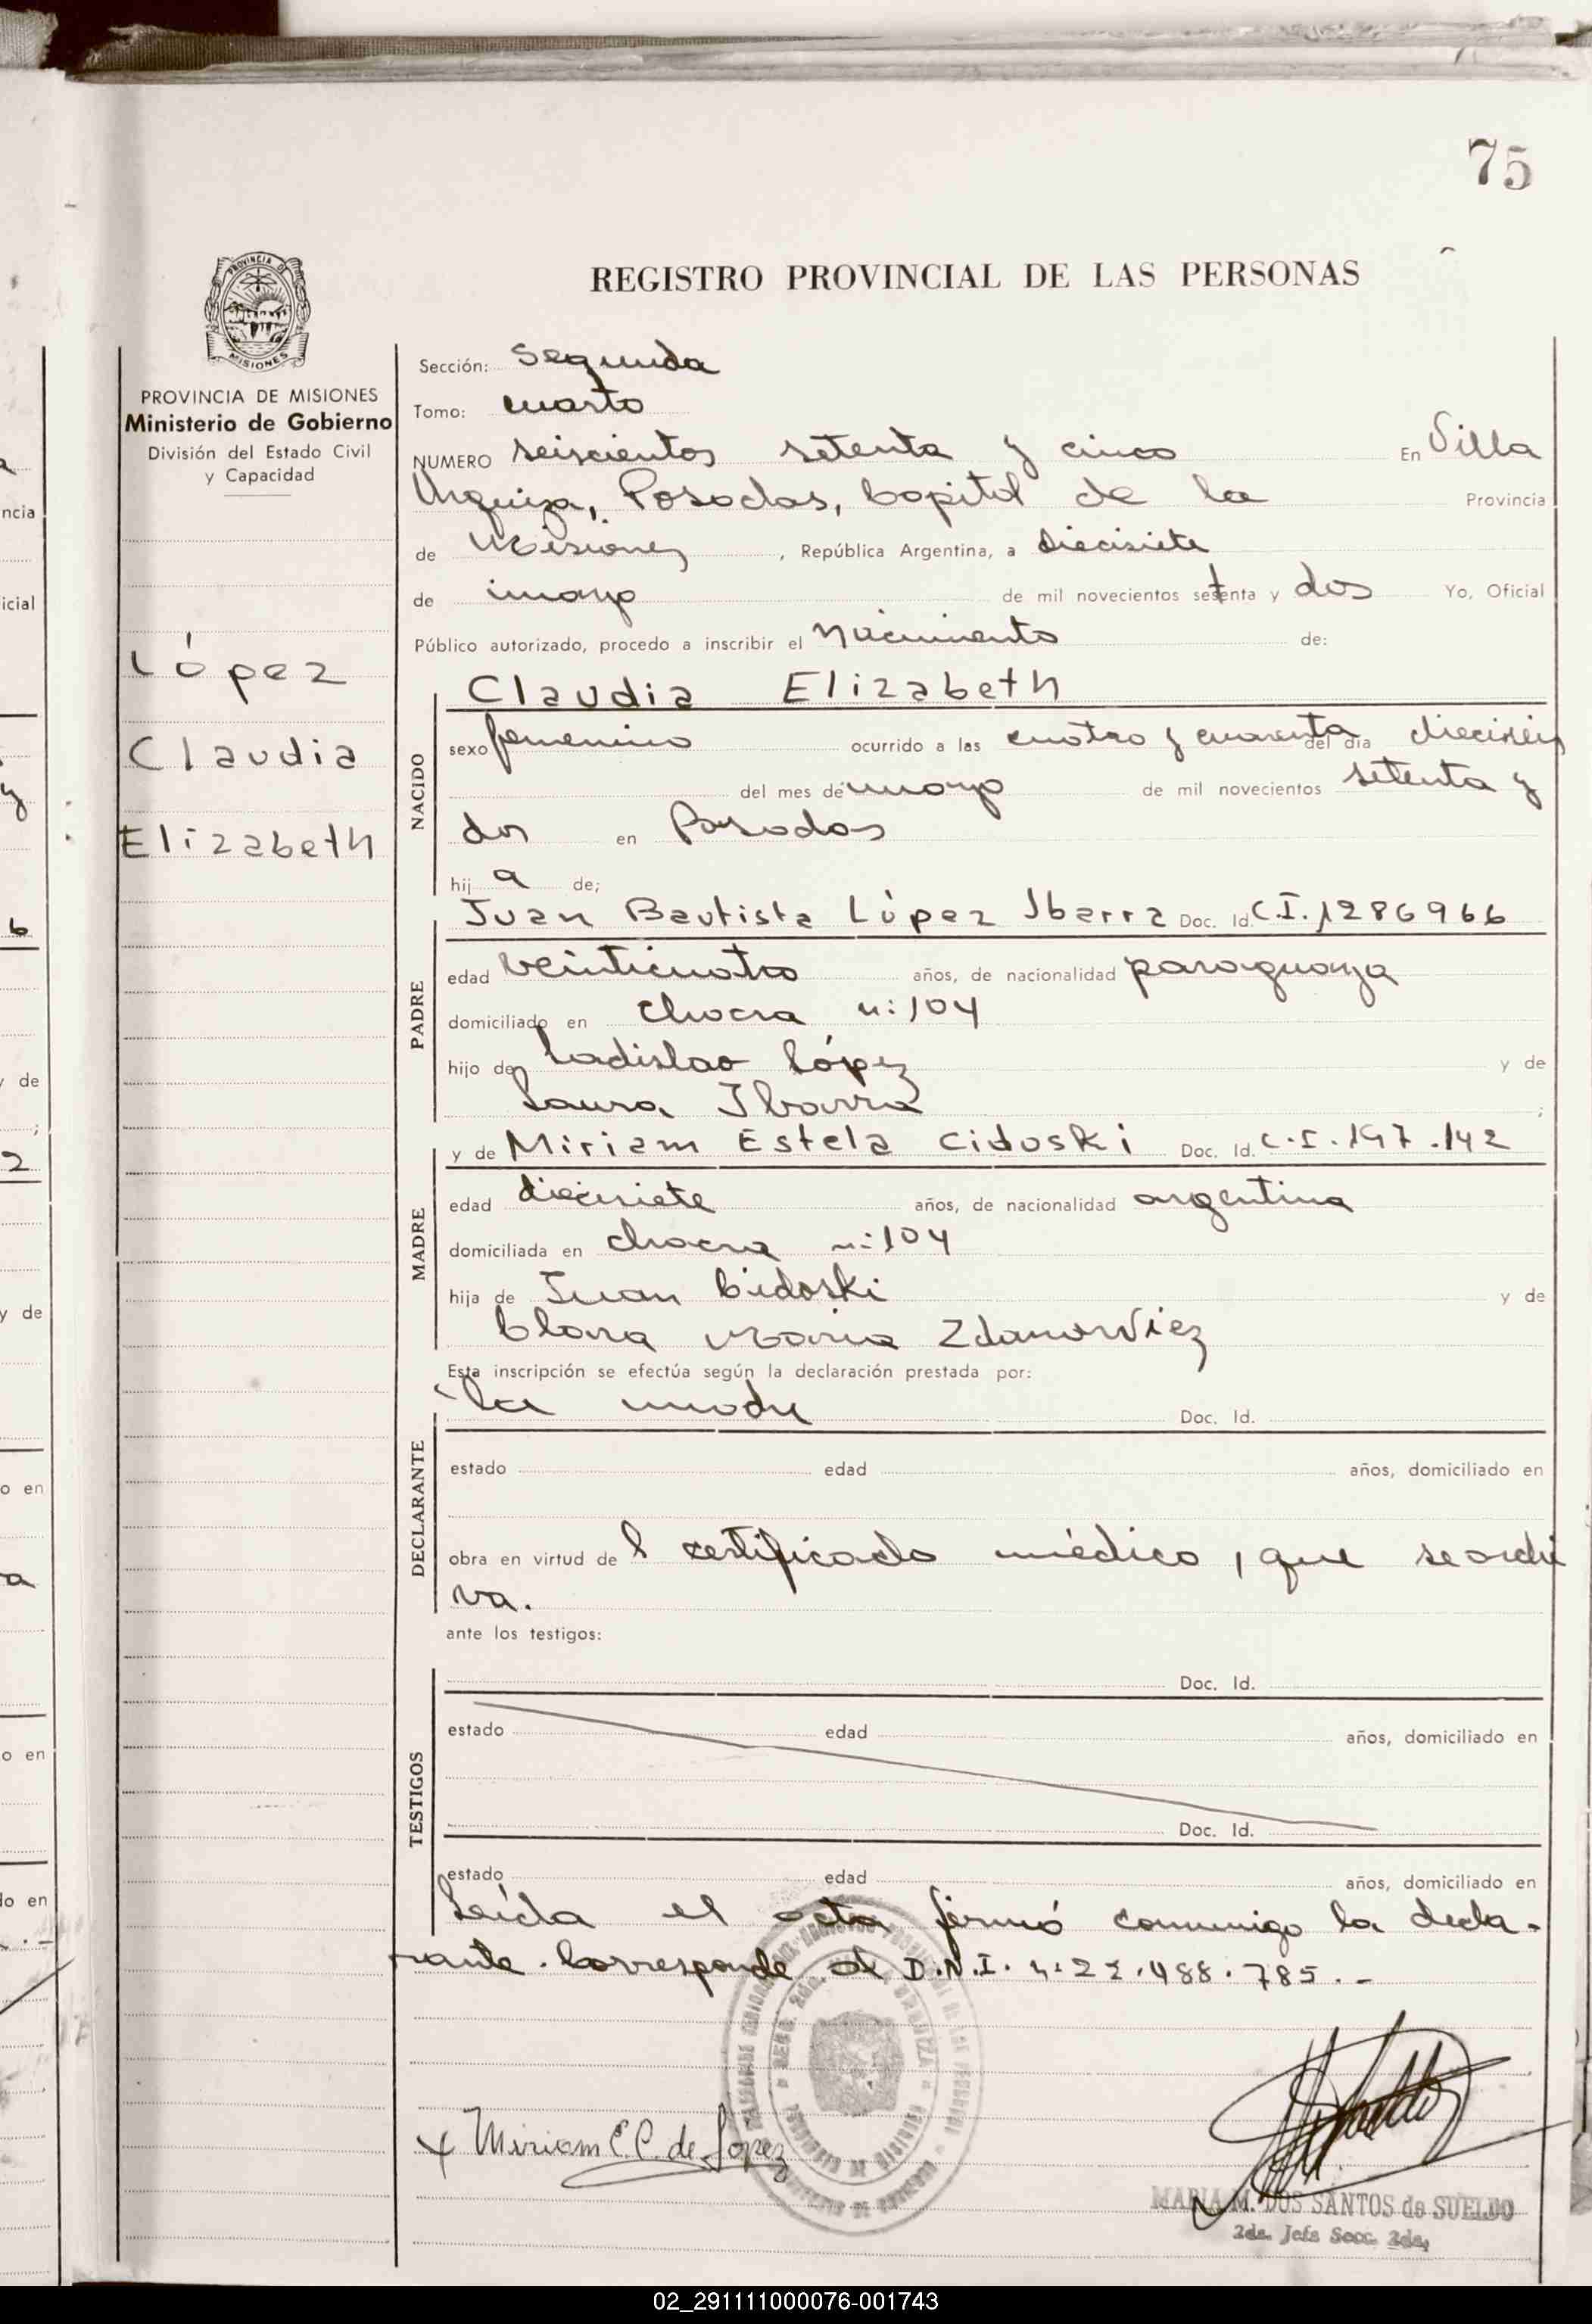 75
REGISTRO PROVINCIAL DE LAS PERSONAS
PROVINCIA DE MISIONES
Ministerio de Gobierno
División del Estado Civil
y Capacidad
López
Claudia
Elizabeth
Sección: Segunda
Tomo: cuarto
NUMERO seiscientos setenta y cinco En Villa
Urquiza, Posadas, Capital de la Provincia
de Misiones, República Argentina, a diecisiete
de mayo de mil novecientos setenta y dos Yo, Oficial
Público autorizado, procedo a inscribir el Nacimiento de:
NACIDO
Claudia Elizabeth
sexo femenino ocurrido a las cuatro y cuarenta del día dieciséis
del mes de mayo de mil novecientos setenta y
dos en Posadas
hij a de;
PADRE
Juan Bautista López Ibarra Doc. Id. C.I. 1286966
edad veinticuatro años, de nacionalidad paraguaya
domiciliado en chacra n: 104
hijo de Ladislao López y de
Laura Ibarra ;
MADRE
y de Miriam Estela Cidoski Doc. Id. C.I. 197.142
edad diecisiete años, de nacionalidad argentina
domiciliada en chacra n: 104
hija de Juan Cidoski y de
Clara María Zdanorviez
Esta inscripción se efectúa según la declaración prestada por:
DECLARANTE
la madre Doc. Id.
estado edad años, domiciliado en
obra en virtud de l certificado médico, que se archi
va.
ante los testigos:
TESTIGOS
Doc. Id.
estado edad años, domiciliado en
Doc. Id.
estado edad años, domiciliado en
Leída el acta firmó conmigo la decla-
rante. Corresponde al D.N.I. n: 22.488.785.-
x Miriam E. C. de López
MARIA M. DOS SANTOS de SUELDO
2da. Jefa Secc. 2da.
02_291111000076-001743